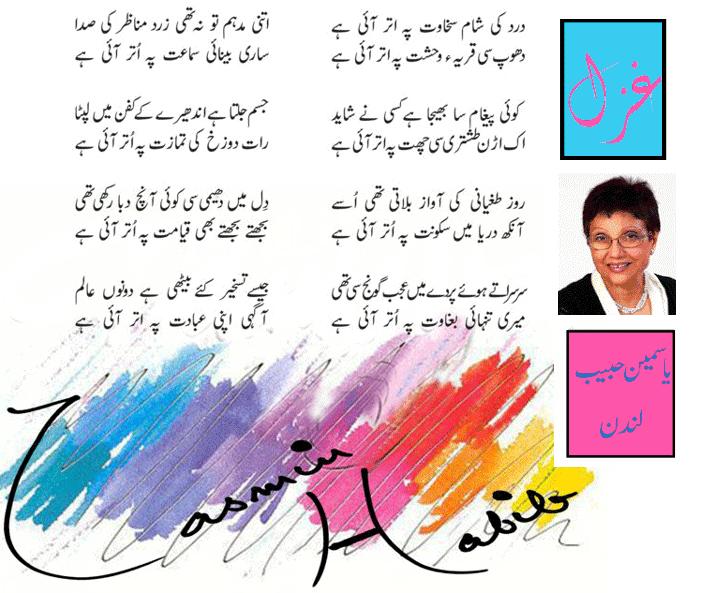 غزل
درد کی شام سخاوت پہ اتر آئی ہے
دھوپ سی قریہء وحشت پہ اتر آئی ہے
اتنی مدہم تو نہ تھی زرد مناظر کی صدا
ساری بینائی سماعت پہ اُتر آئی ہے
کوئی پیغام سا بھیجا ہے کسی نے شاید
اک اڑن طشتری سی چھت پہ اتر آئی ہے
جسم جلتا ہے اندھیرے کے کفن میں لپٹا
رات دوزخ کی تمازت پہ اُتر آئی ہے
روز طغیانی کی آواز بلاتی تھی اُسے
آنکھ دریا میں سکونت پہ اُتر آئی ہے
دِل میں دھیمی سی کوئی آنچ دبا رکھی تھی
بجھتے بجھتے بھی قیامت پہ اُتر آئی ہے
سرسراتے ہوئے پردے میں عجب گونج سی تھی
میری تنہائی بغاوت پہ اُتر آئی ہے
جیسے تسخیر کئے بیٹھی ہے دونوں عالم
آگہی اپنی عبادت پہ اتر آئی ہے
یاسمین حبیب
لندن
Yasmin
Habib